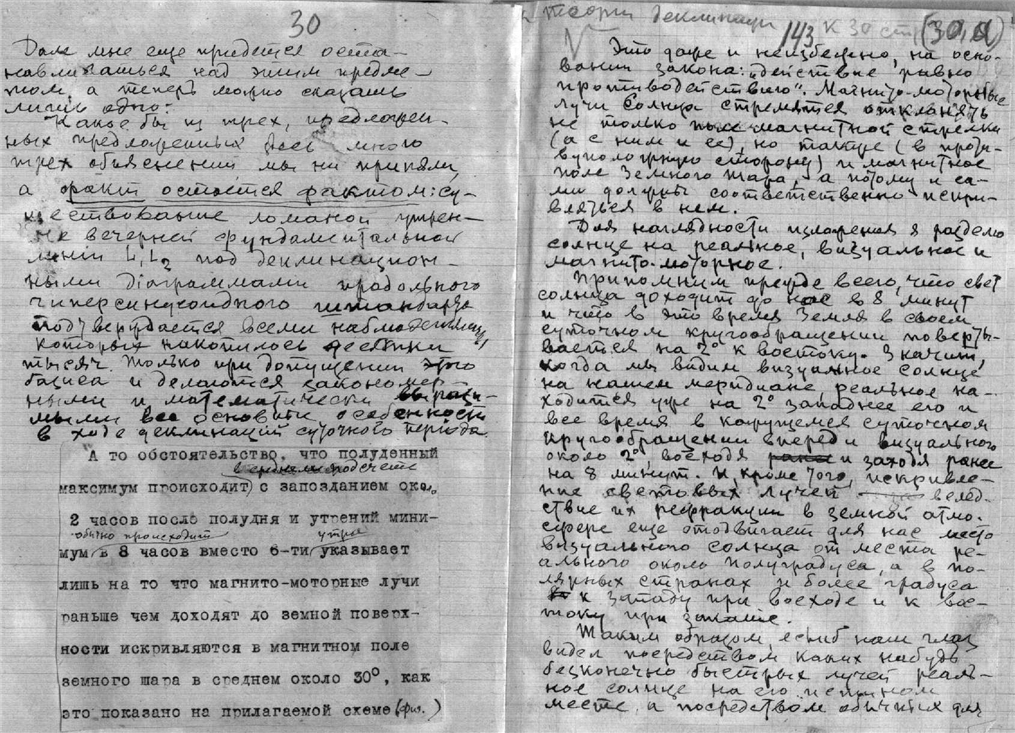 30
Дале мне еще придется оста-
навливаться над этим предме-
том, а теперь можно сказать
лишь одно:
Какое бы из трех, предложен-
ных предложенных здесь много
трех объяснений мы ни приняли,
а факт остается фактом: су-
ществованье ломаной утрен-
не вечерней фундаментальной
линии L1L2 под деклинацион-
ными диаграммами продольного
гиперсинусоидного штандарда
подтверждается всеми наблюденьями,
которых накопилось десятки
тысяч. Только при допущении этого
базиса и делаются закономер-
ными и математически вырази-
мыми все основные особенности
в ходе деклинаций суточного периода.
А то обстоятельство, что полуденный
в среднем подсчете
максимум происходит с запозданием око.
2 часов после полудня и утрений мини-
обычно происходит утра
мум в 8 часов вместо 6-ти указывает
лишь на то что магнито-моторные лучи
раньше чем доходят до земной поверх-
ности искривляются в магнитном поле
земного шара в среднем около 30°, как
это показано на прилагаемой схеме (фиг. )
теории деклинации 143 К 30 ст (30, а)
Это даже и неизбежно, на осно-
вании закона: "действие равно
противодействию". Магнито-моторные
лучи Солнца стремятся отклонять
не только магнитной стрелки
(а с ним и ее), но также (в проти-
вуположную сторону) и магнитное
поле земного шара, а потому и са-
ми должны соответственно искри-
вляться в нем.
Для наглядности изложения я разделю
солнце на реальное, визуальное и
магнито-моторное.
Припомним прежде всего, что свет
солнца доходит до нас в 8 минут
и что в это время Земля в своем
суточном кругообращении поверты-
вается на 2° к востоку. Значит,
когда мы видим визуальное солнце
на нашем меридиане реальное на-
ходится уже на 2° западнее его и
все время в кажущемся суточном
кругообращении впереди визуального
около 2° восходя и заходя ранее
на 8 минут. И, кроме того, искривле-
ние световых лучей вслед-
ствие их рефракции в земной атмо-
сфере еще отодвигает для нас место
визуального солнца от места ре-
ального около полуградуса, а в по-
лярных странах и более градуса
к западу при восходе и к вос-
току при закате.
Таким образом, если б наш глаз
видел посредством каких нибудь
безконечно быстрых лучей реаль-
ное солнце на его истинном
месте, а посредством обычных для